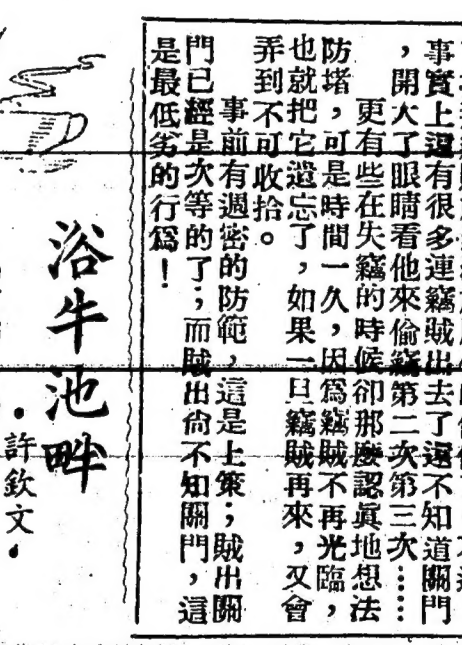 事實上還有很多連竊賊出去了還不知道關門
，開大了眼睛看他來偷竊第二次第三次……
更有些在失竊的時候卻那麼認眞地想法
防堵，可是時間一久，因爲竊賊不再光臨，
也就把它遺忘了，如果一旦竊賊再來，又會
弄到不可收拾。
事前有週密的防範，這是上策；賊出關
門已經是次等的了；而賊出尙不知關門，這
是最低劣的行爲！
浴牛池畔
•許欽文•